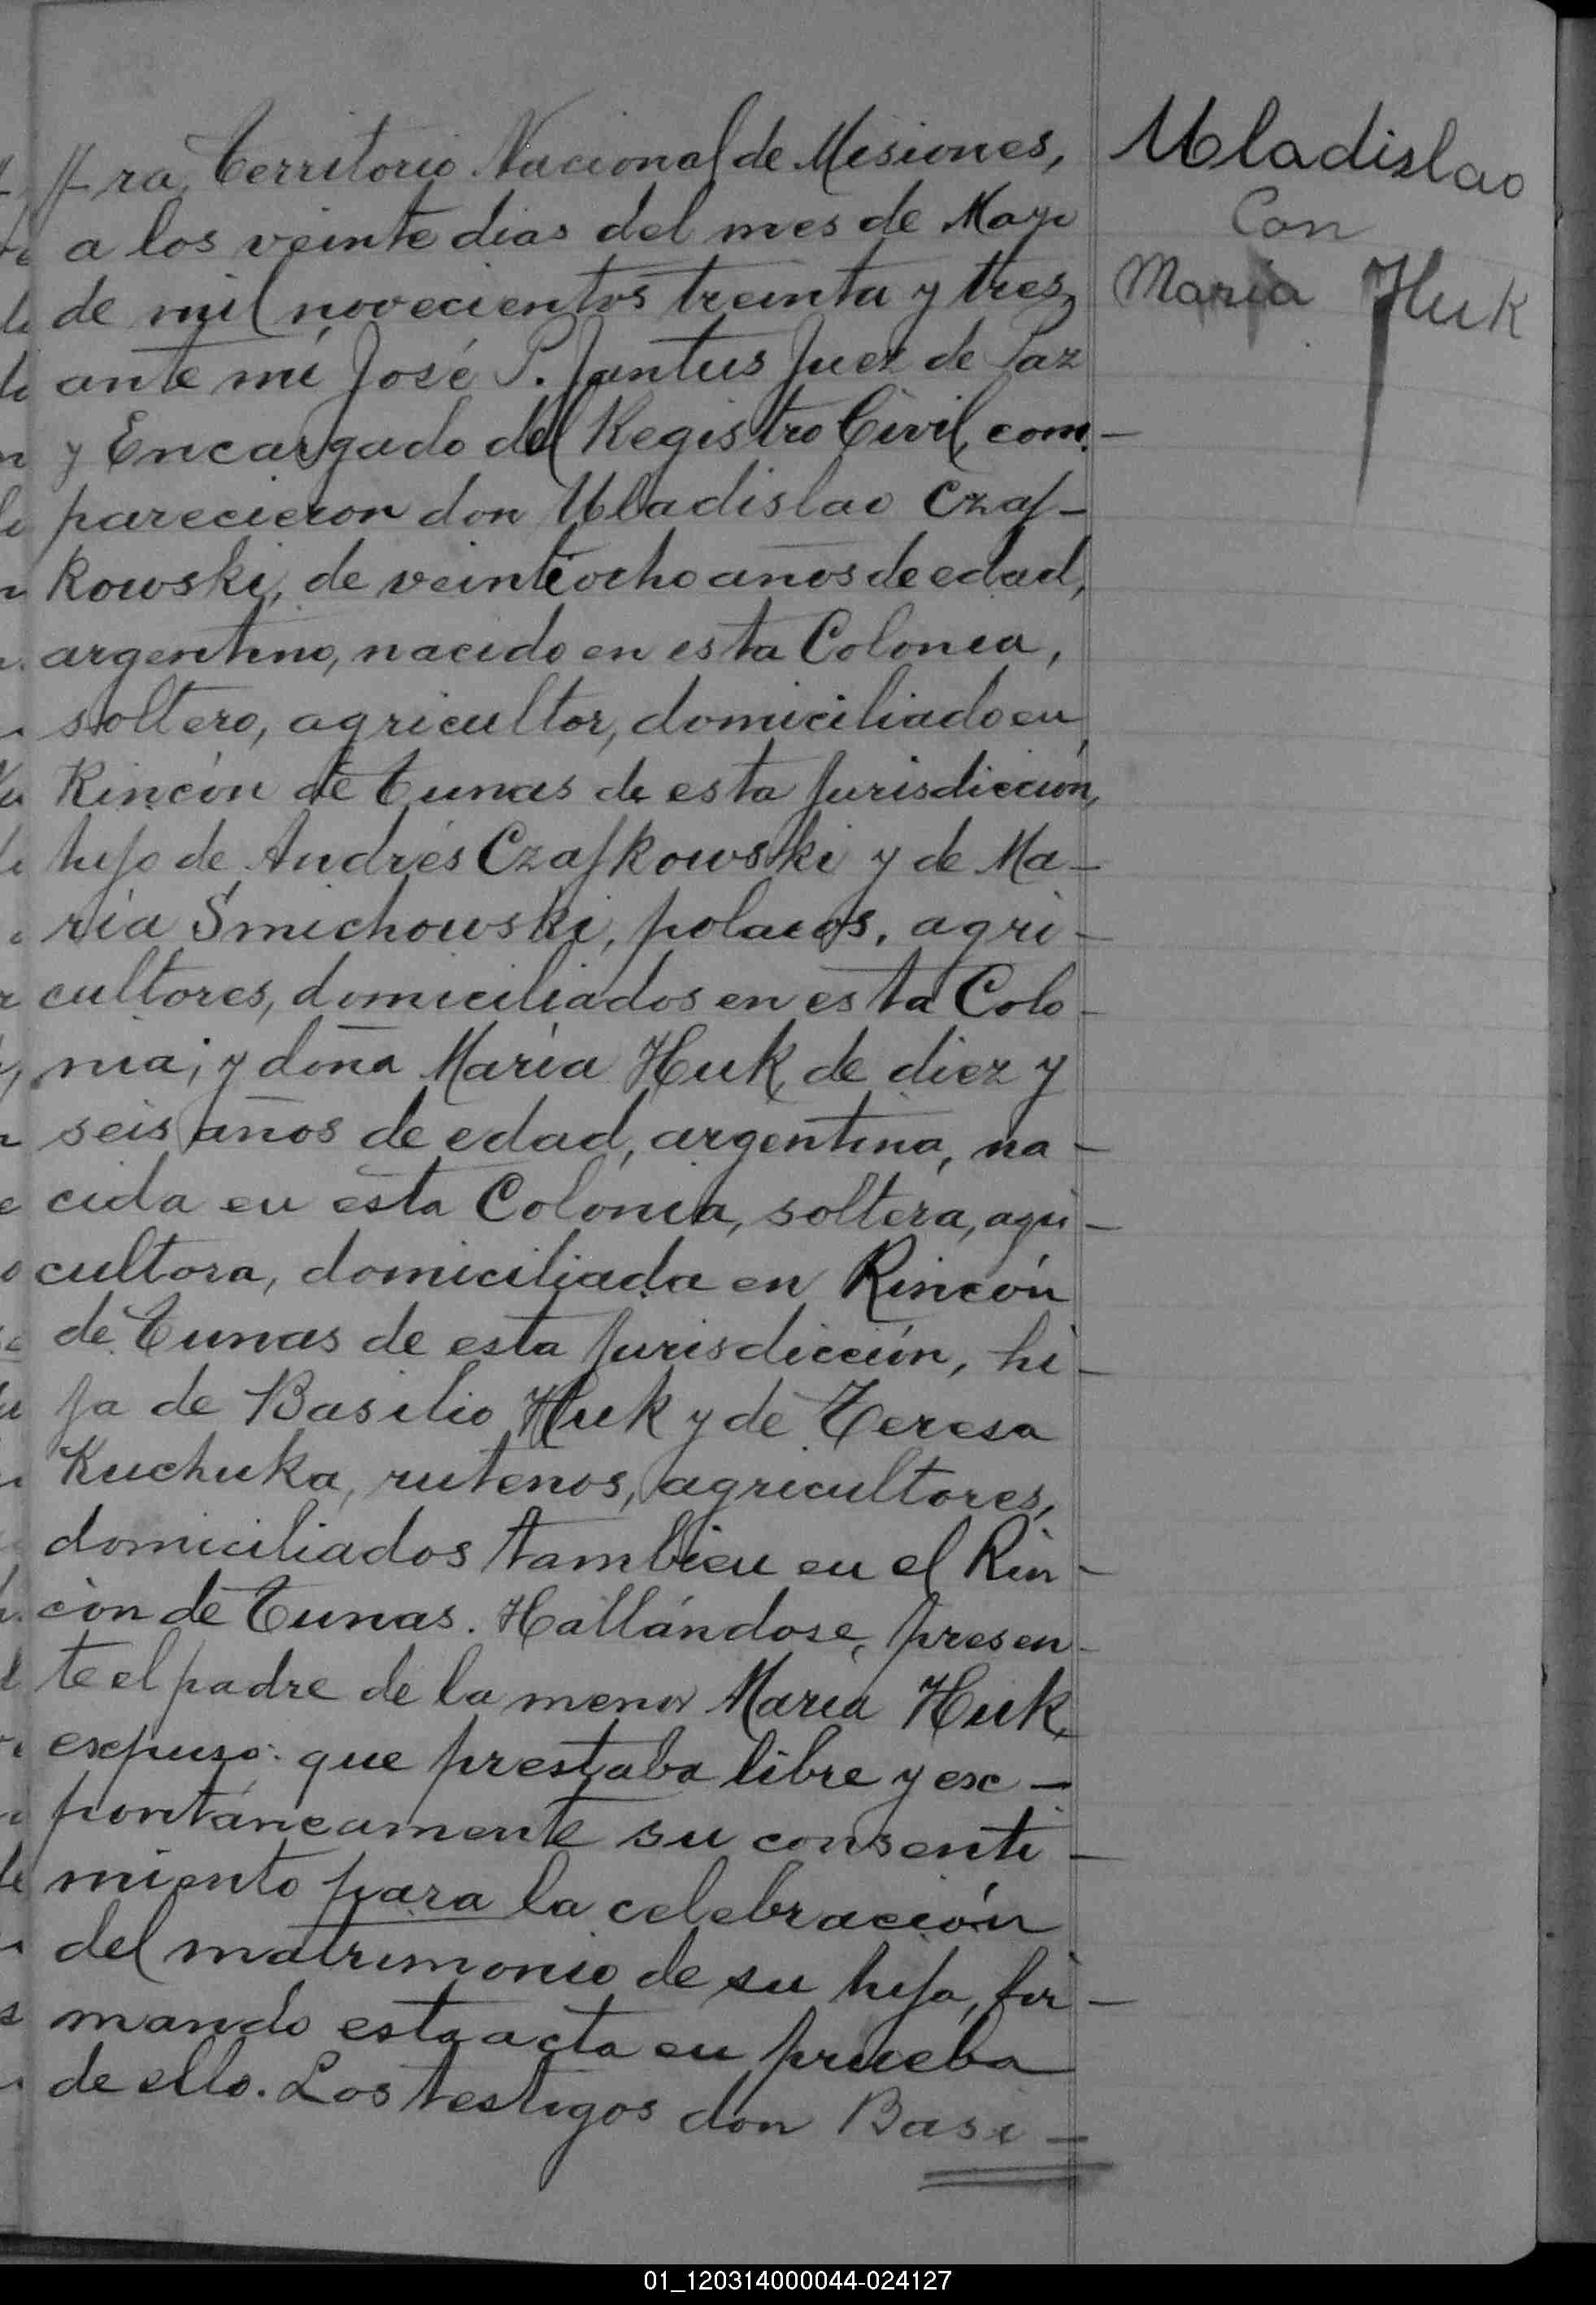 ra, Territorio Nacional de Misiones,
a los veinte dias del mes de Mayo
de mil novecientos treinta y tres,
ante mí José P. Jantus Juez de Paz
y Encargado del Registro Civil, com-
parecieron don Uladislao Czaj-
kowski, de veinteocho años de edad,
argentino, nacido en esta Colonia,
soltero, agricultor, domiciliado en
Rincón de Tunas de esta jurisdicción,
hijo de Andrés Czajkowski y de Ma-
ría Smichowski, polacos, agri-
cultores, domiciliados en esta Colo-
nia; y doña María Huk, de diez y
seis años de edad, argentina, na-
cida en esta Colonia, soltera, agri-
cultora, domiciliada en Rincón
de Tunas de esta jurisdicción, hi-
ja de Basilio Huk y de Teresa
Kuchuka, rutenos, agricultores,
domiciliados tambien en el Rin-
cón de Tunas. Hallándose, presen-
te el padre de la menor María Huk,
expuso: que prestaba libre y ex-
pontáneamente su consenti-
miento para la celebración
del matrimonio de su hija, fir-
mando esta acta en prueba
de ello. Los testigos don Basi-
Uladislao
Con
María Huk
01_120314000044-024127